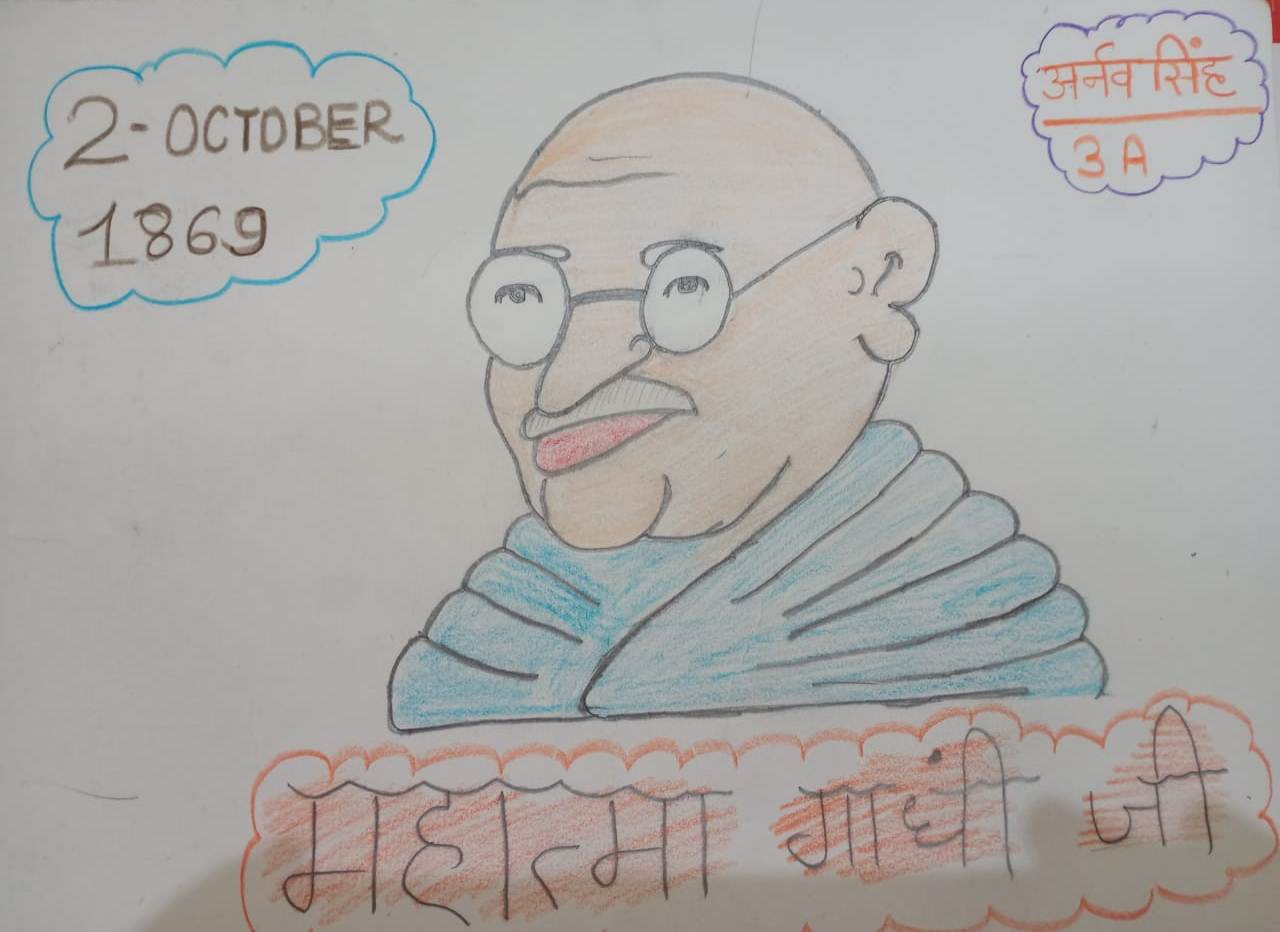 2-OCTOBER
1869
अर्नव सिंह
3 A
महात्मा गांधी जी